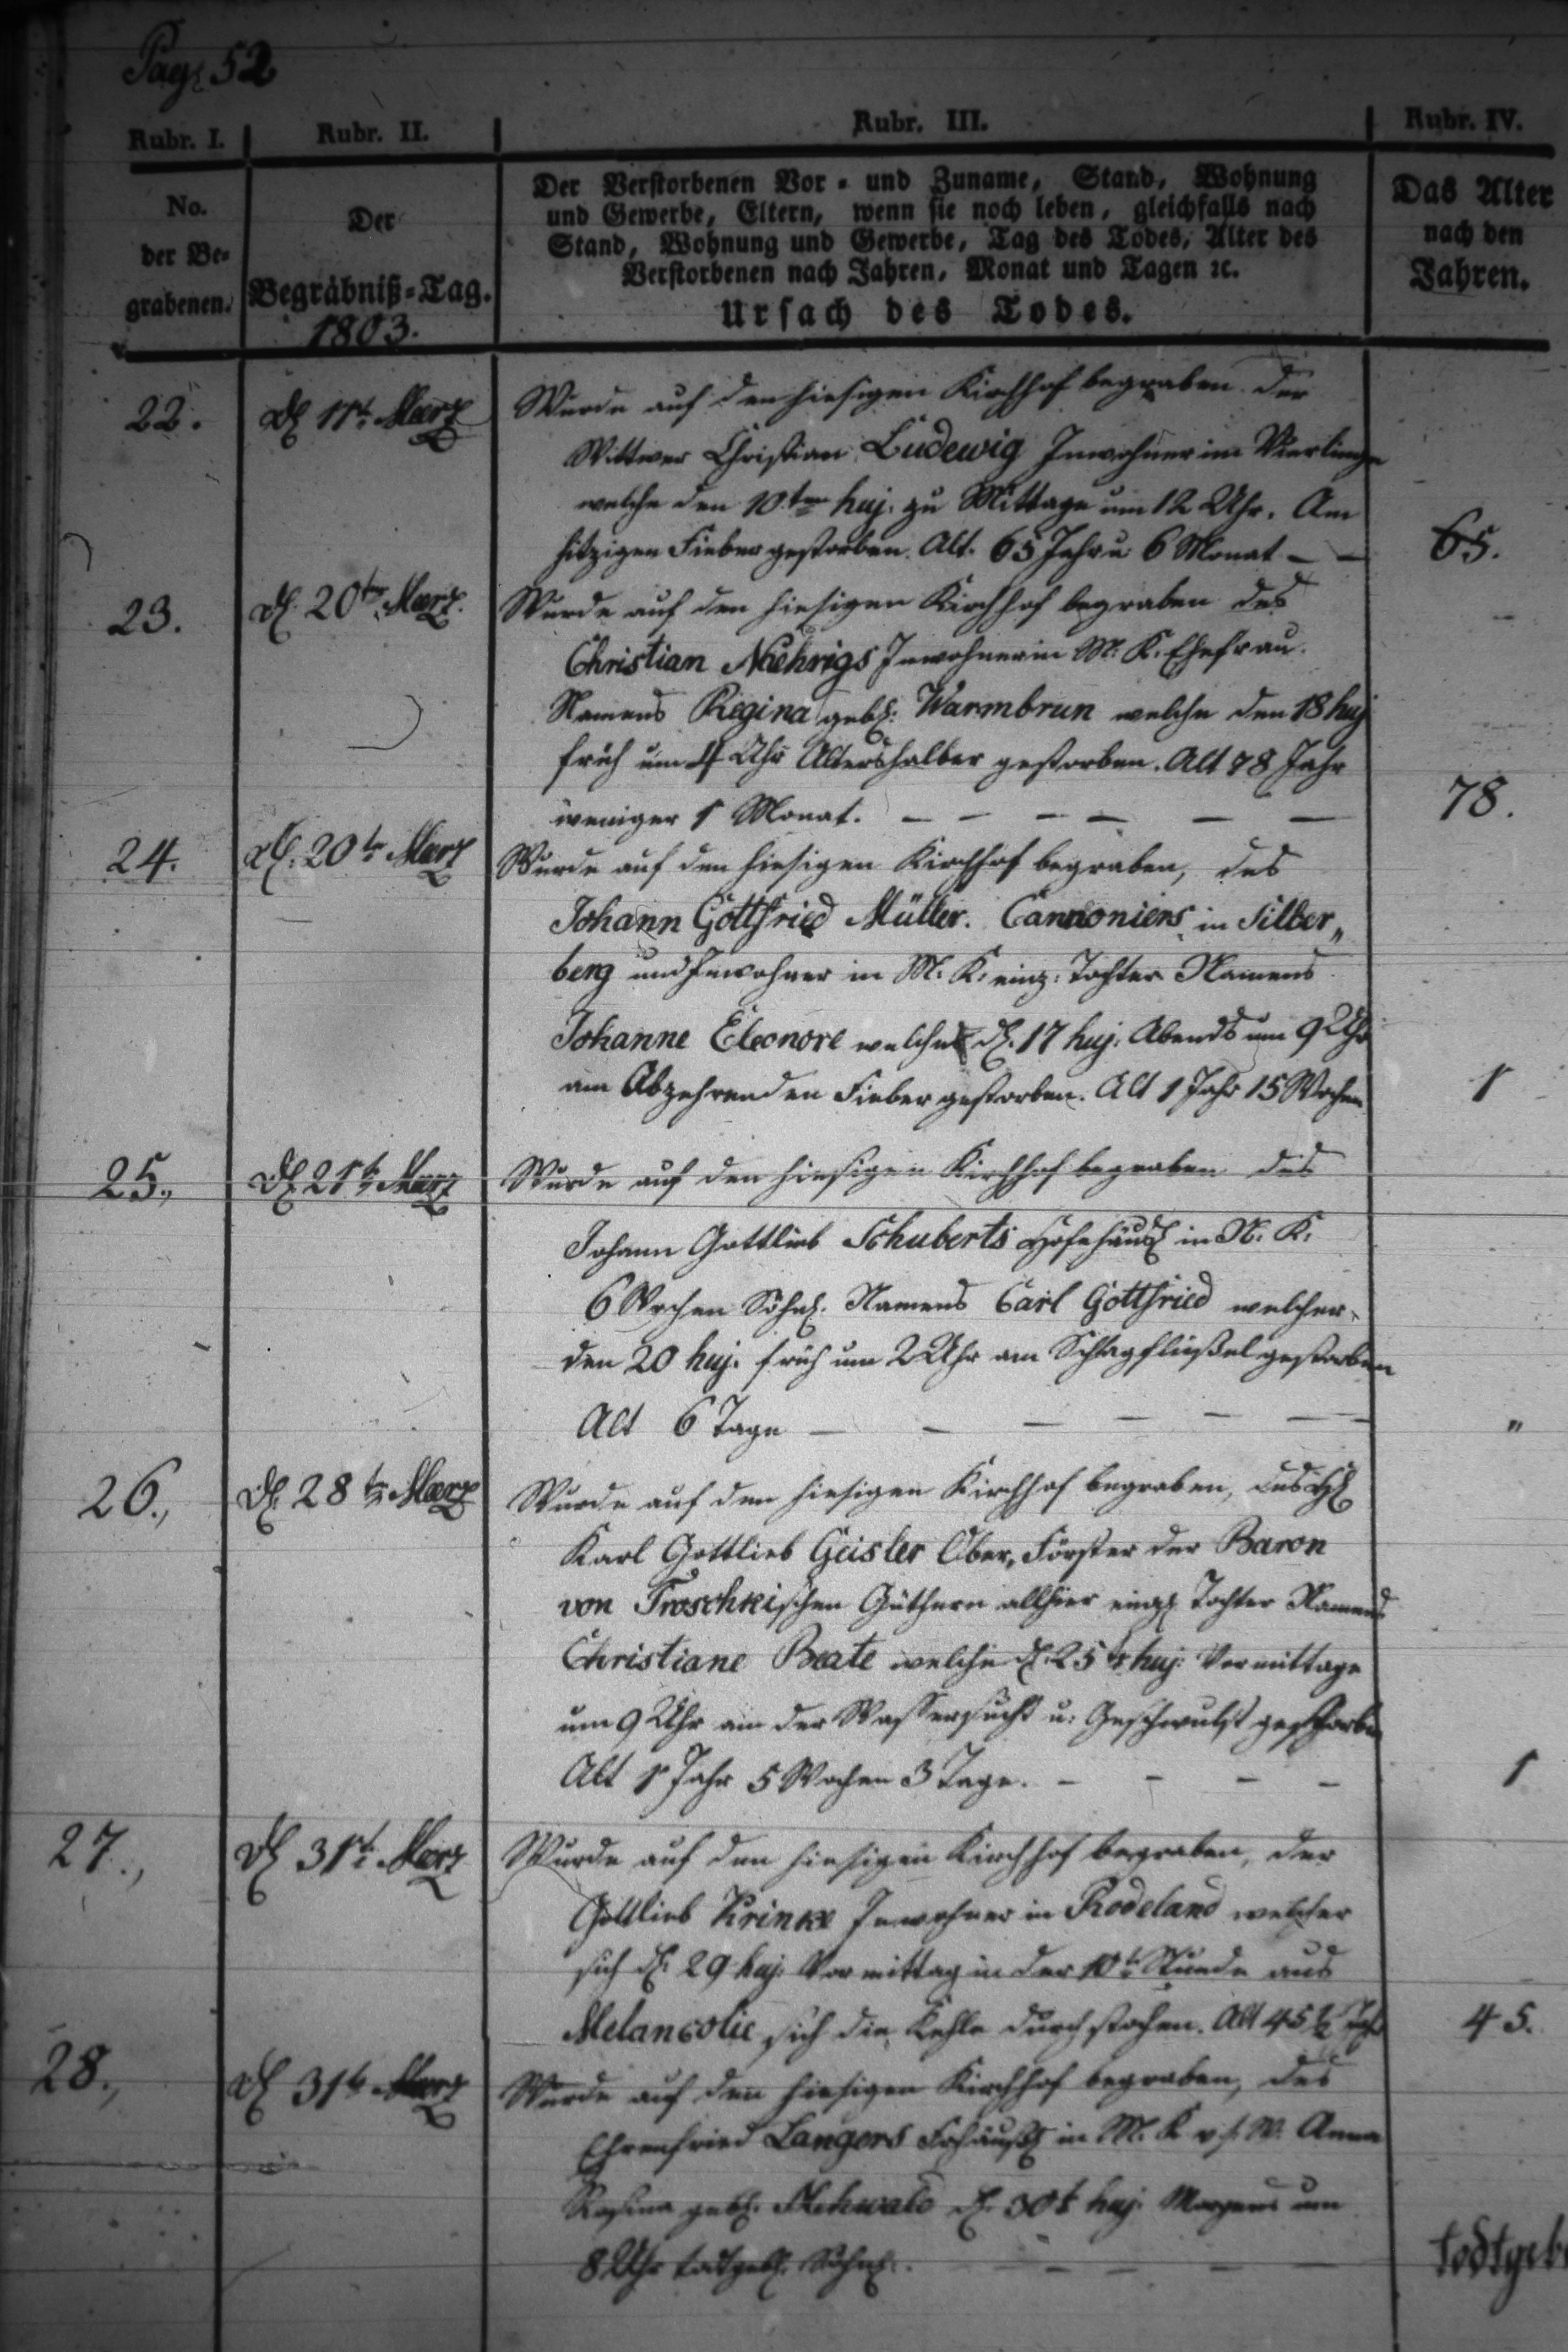 Pag. 52
Rubr. I. Rubr. II. Rubr. III. Rubr. IV.
No. der Be-grabenen.
Der Begräbniß-Tag.
1803.
Der Verstorbenen Vor- und Zuname, Stand, Wohnung
und Gewerbe, Eltern, wenn sie noch leben, gleichfalls nach
Stand, Wohnung und Gewerbe, Tag des Todes, Alter des
Verstorbenen nach Jahren, Monat und Tagen ꝛc.
Ursach des Todes.
Das Alter
nach den
Jahren.
22. d. 11t. Maerz Wurde auf den hiesigen Kirchhof begraben der
Wittwer Christian Ludewig Inwohner im
welche den 10ten huj. zu Mittage um 12 Uhr. Am
hitzigen Fieber gestorben. Alt. 65 Jahr u 6 Monat – – 65.
23. d. 20te Maerz. Wurde auf den hiesigen Kirchhof begraben des
Christian Naehrigs Inwohner in M. K. Ehefrau.
Namens Regina geb. Warmbrun welche den 18 huj
früh um 4 Uhr Altershalber gestorben. Alt 78 Jahr
weniger 1 Monat. – – – – – – 78.
24. d. 20te Maerz Wurde auf den hiesigen Kirchhof begraben, des
Johann Gottfried Müller. Cannoniers in Silber„
berg und Inwohner in M. K. einz. Tochter Namens
Johanne Eleonore welche d. 17 huj. Abends um 9 Uhr
am Abzehrenden Fieber gestorben. Alt 1 Jahr 15 Wochen 1
25., d. 21t. Maerz Wurde auf den hiesigen Kirchhof begraben des
Johann Gottlieb Schuberts Hofehäusl in N. K.
6 Wochen Söhnl. Namens Carl Gottfried welcher
den 20 huj. früh um 2 Uhr am Schlagflüßel gestorben
Alt 6 Tage – – – – – – "
26., d. 28te Maerz Wurde auf den hiesigen Kirchhof begraben, des H.
Karl Gottlieb Geisler Ober„Förster der Baron
von Troschkischen Güthern allhier einz. Tochter Namens
Christiane Beate welche d. 25te huj: Vormittage
um 9 Uhr an der Wassersucht u. Geschwulst gestorben
Alt 1 Jahr 5 Wochen 3 Tage. – – – – 1
27., d. 31t. Maerz Wurde auf den hiesigen Kirchhof begraben, der
Gottlieb Krinke Inwohner in Rodeland welcher
sich d. 29 huj. Vormittag in der 10t. Stunde aus
Melancolie sich die Kehle durchstochen. Alt 45 ½ Jahr 45.
28., d. 31t. Maerz Wurde auf den hiesigen Kirchhof begraben, des
Ehrenfried Langers in M. K. Anna
Rosina geb. d. 30t huj. Morgens um
8 Uhr todtgeb. Söhnl. – – – – todtgeb